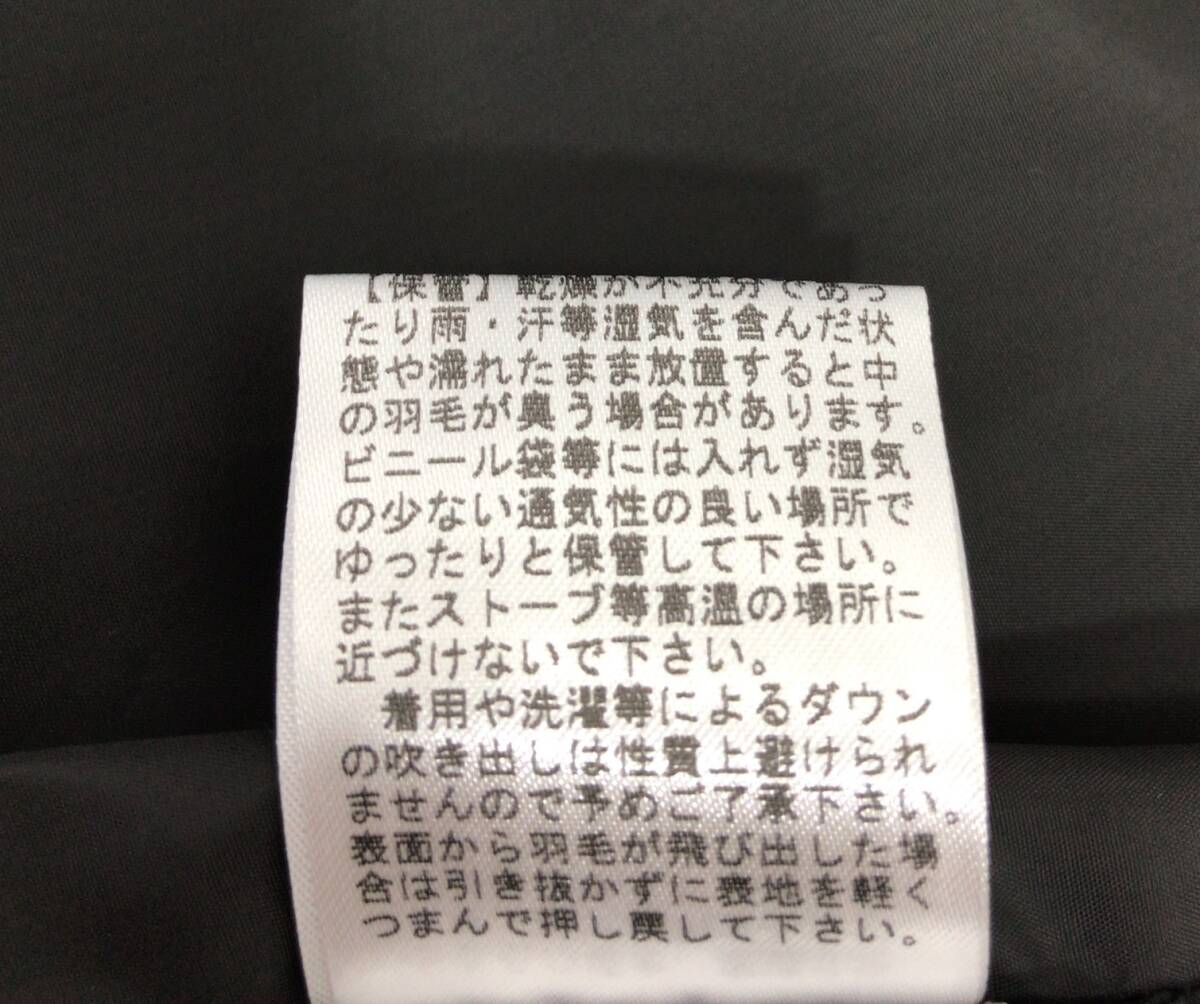 【保管】乾燥が不充分であっ
たり雨・汗等湿気を含んだ状
態や濡れたまま放置すると中
の羽毛が臭う場合があります。
ビニール袋等には入れず湿気
の少ない通気性の良い場所で
ゆったりと保管して下さい。
またストーブ等高温の場所に
近づけないで下さい。
着用や洗濯等によるダウン
の吹き出しは性質上避けられ
ませんので予めご了承下さい。
表面から羽毛が飛び出した場
合は引き抜かずに表地を軽く
つまんで押し戻して下さい。